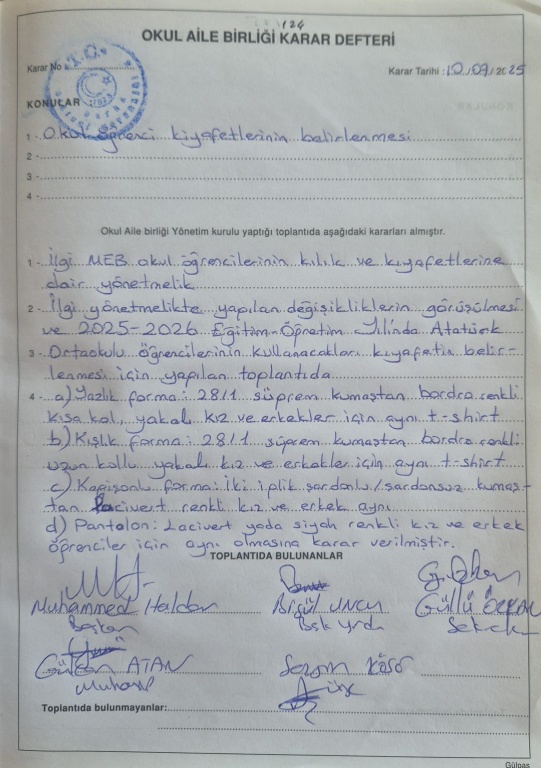 124
OKUL AİLE BİRLİĞİ KARAR DEFTERİ
Karar No
Karar Tarihi : 10/09/2025
T.C.
KONULAR
1 - Okul öğrenci kıyafetlerinin belirlenmesi
2 -
3 -
4 -
Okul Aile birliği Yönetim kurulu yaptığı toplantıda aşağıdaki kararları almıştır.
1 - İlgi MEB okul öğrencilerinin kılık ve kıyafetlerine
dair yönetmelik
2 - İlgi yönetmelikte yapılan değişikliklerin görüşülmesi
ve 2025-2026 Eğitim-Öğretim Yılı'nda Atatürk
3 - Ortaokulu öğrencilerinin kullanacakları kıyafetin belir-
lenmesi için yapılan toplantıda
4 - a) Yazlık forma: 28/1 süprem kumaştan bordro renkli
kısa kol, yakalı kız ve erkekler için aynı t-shirt
b) Kışlık forma: 28/1 süprem kumaştan bordro renkli
uzun kollu yakalı kız ve erkekler için aynı t-shirt
c) Kapişonlu forma: İki iplik şardonlu/şardonsuz kumaş-
tan lacivert renkli kız ve erkek aynı
d) Pantolon: Lacivert yada siyah renkli kız ve erkek
öğrenciler için aynı olmasına karar verilmiştir.
TOPLANTIDA BULUNANLAR
Muhammed Birgül Uncu Güllü
Başkan Bşk yrd.
ATAN KÖSE
Toplantıda bulunmayanlar:
Gülpaş